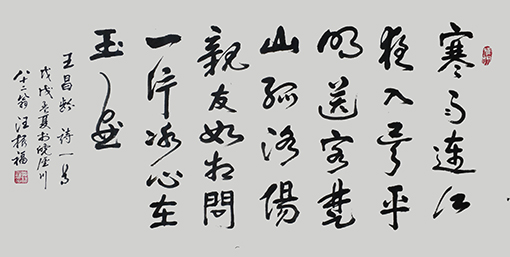 寒雨連江
夜入吴平
明送客楚
山孤洛陽
親友如相問
一片冰心在
玉壶
王昌齡詩一首
戊戌夏於川
八十二翁汪振福